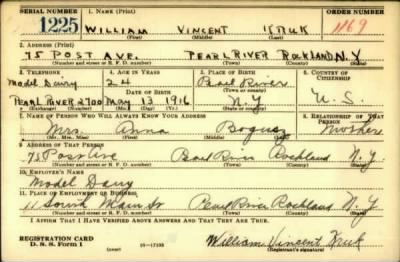 SERIAL NUMBER 1. NAME (Print) ORDER NUMBER
1225 WILLIAM VINCENT KRUK 1169
(First) (Middle) (Last)
2. ADDRESS (Print)
75 POST AVE. PEARL RIVER ROCKLAND N.Y
(Number and street or R. F. D. number) (Town) (County) (State)
3. TELEPHONE 4. AGE IN YEARS 5. PLACE OF BIRTH 6. COUNTRY OF CITIZENSHIP
Model Dairy 24 Pearl River
DATE OF BIRTH (Town or county)
Pearl River 2700 May 13 1916 N.Y U.S.
(Exchange) (No.) (Mo.) (Day) (Yr.) (State or country)
7. NAME OF PERSON WHO WILL ALWAYS KNOW YOUR ADDRESS 8. RELATIONSHIP OF THAT PERSON
Mrs. Anna Mother
(Mr., Mrs., Miss) (First) (Middle) (Last)
9. ADDRESS OF THAT PERSON
75 Post Ave Pearl River Rockland N.Y.
(Number and street or R. F. D. number) (Town) (County) (State)
10. EMPLOYER'S NAME
Model Dairy
11. PLACE OF EMPLOYMENT OR BUSINESS
11 South Main St Pearl River Rockland N.Y.
(Number and street or R. F. D. number) (Town) (County) (State)
I AFFIRM THAT I HAVE VERIFIED ABOVE ANSWERS AND THAT THEY ARE TRUE.
REGISTRATION CARD
D. S. S. Form 1 William Vincent Kruk
(Registrant's signature)